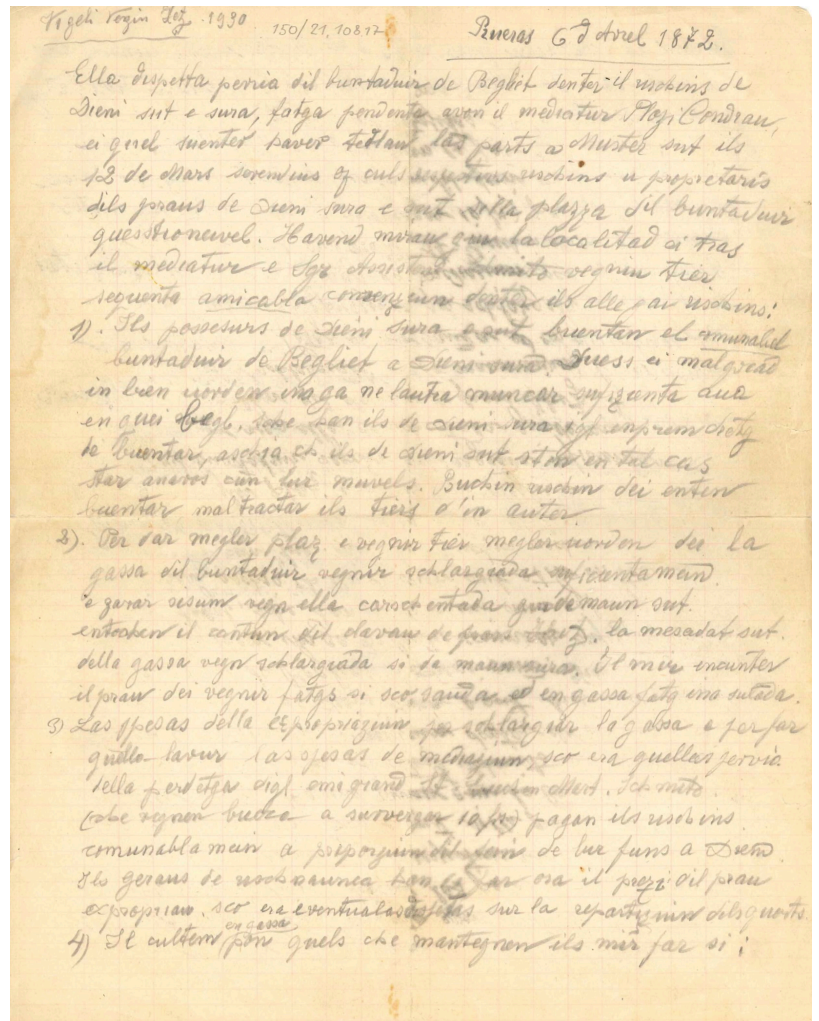 Vigeli Vegin Loz 1930
150/21,10817
Rueras 6 d' Avrel 1872.
Ella dispetta pervia dil buentaduir de Begliet denter il uschins de
Dieni sut e sura, fatga pendenta avon il mediatur Plazi Condrau,
ei quel suenter haver tedlau las parts a Muster sut ils
12 de Mars serendius cun uschins u propretaris
dils praus de Dieni sura e sut sella plazza dil buntaduir
quesstionevel. Havend mirau giu la localitad ei tras
il mediatur e Sgr Assistent Schmits vegniu tier
sequenta amicabla convenziun denter ils allegai uschins:
1). Ils possesurs de Dieni sura e sut buentan el comunabel
buntaduir de Begliet a Dieni sura. Duess ei malgrad
in bien uorden inaga ne lautra muncar sufizienta aua
en quei Begl. sche han ils de Dieni sura igl emprem dretg
de buentar, aschia ch ils de Dieni sut ston en tal cas
star anavos cun lur muvels. Buchin uschin dei enten
buentar maltractar ils tiers d'in auter
2). Per dar megler plaz e vegnir tier megler uorden dei la
gassa dil buntaduir vegnir schlargiada suficientamein
e zavar sisum vegn ella carschentada gudemaun sut.
entochen il cantun dil clavau de frars la mesadat sut.
della gassa vegn schlargiada si de maun sura. Il mir encunter
il prau dei vegnir fatgs si sco sauda, ed en gassa fatg ina sulada.
3) Las spesas della expropriaziun per schlargiar la gassa e per far
quella lavur las spesas de mediaziun, sco era quellas pervia
della perdetga digl emigrand Mart. Schmits.
(che vegnen bucca a survergar 10 frs) pagan ils uschins
comunablamein a proporziun dil fein de lur funs a Dieni
Ils geraus de uschnaunca han de far ora il prezi dil prau
expropriau, sco era eventualas dispetas sur la repartiziun dels quosts
4) Il cultem en gassa pon quels che mantegnen ils mir far si;